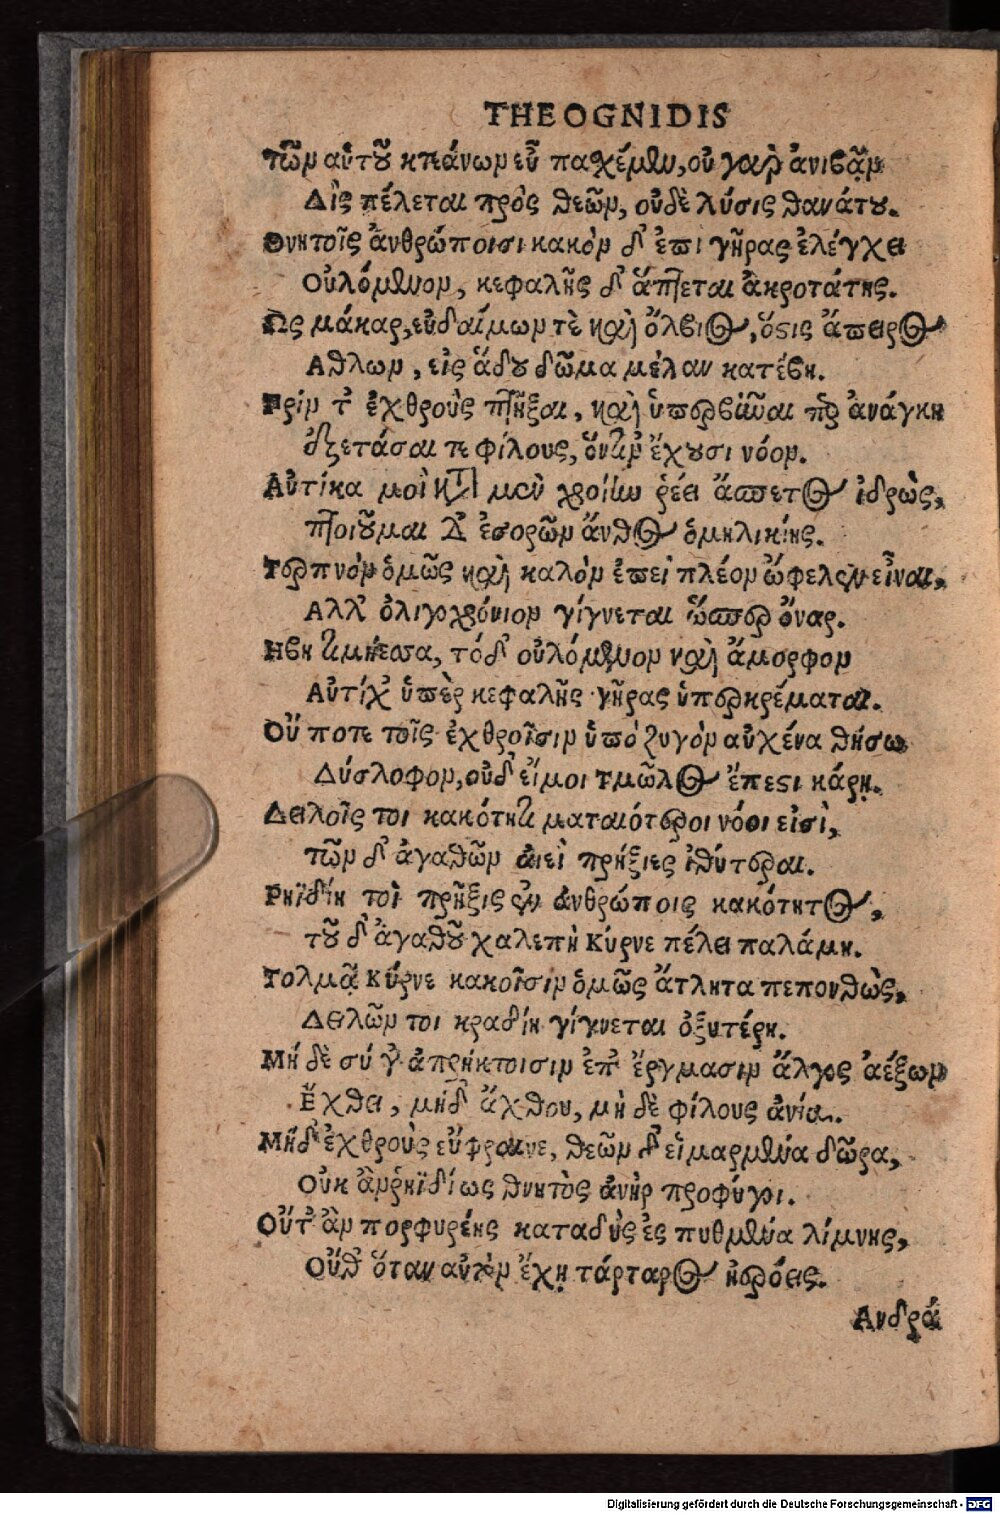 THEOGNIDIS
τῶν αὑτοῦ κτεάνων εὖ πασχέμεν, οὐ γὰρ ἀνιβᾷν
Δὶς πέλεται πρὸς θεῶν, οὐδὲ λύσις θανάτου.
Θνητοῖς ἀνθρώποισι κακὸν δ' ἐπι γῆρας ἐλέγχει
Οὐλόμενον, κεφαλῆς δ' ἅπτεται ἀκροτάτης.
Ὡς μάκαρ, εὐδαίμων τὲ καὶ ὄλβιος, ὅστις ἄπειρος
Αθλων, εἰς ἅδου δῶμα μέλαν κατέβη.
Πρίν τ' ἐχθροὺς πτῆξαι, καὶ ὑπερβῆναι περ ἀνάγκη
ἐξετάσαι τε φίλους, ὅντιν' ἔχουσι νόον.
Αὐτίκα μοὶ κατὰ μὲν χροίην ῥέει ἄσπετος ἱδρὼς,
πτοιοῦμαι δ' ἐσορῶν ἄνθος ὁμηλικίης.
Τερπνὸν ὁμῶς καὶ καλὸν ἐπεὶ πλέον ὤφελεν εἶναι,
Αλλ' ὀλιγοχρόνιον γίγνεται ὥσπερ ὄναρ.
Ηβη τιμήεσσα, τό δ' οὐλόμενον καὶ ἄμορφον
Αὐτίχ' ὑπὲρ κεφαλῆς γῆρας ὑπερκρέμαται.
Οὔ ποτε τοῖς ἐχθροῖσιν ὑπὸ ζυγὸν αὐχένα θήσω
Δύσλοφον, οὐδ' εἴ μοι Τμῶλος ἔπεστι κάρῃ.
Δειλοῖς τοι κακότητι ματαιότεροι νόοι εἰσὶ,
τῶν δ' ἀγαθῶν αἰεὶ πρήξιες ἰθύτεραι.
Ρηϊδίη τοὶ πρῆξις ἐν ἀνθρώποις κακότητος,
τοῦ δ' ἀγαθοῦ χαλεπὴ Κύρνε πέλει παλάμη.
Τολμᾷ Κύρνε κακοῖσιν ὁμῶς ἄτλητα πεπονθὼς,
Δειλῶν τοι κραδίη γίγνεται ὀξυτέρη.
Μή δὲ σύ γ' ἀπρήκτοισιν ἐπ' ἔργμασιν ἄλγος ἀέξων
Ἔχθει, μηδ' ἄχθου, μὴ δὲ φίλους ἀνία.
Μήδ' ἐχθροὺς εὔφραινε, θεῶν δ' εἱμαρμένα δῶρα,
Οὐκ ἂν ῥηϊδίως θνητὸς ἀνὴρ προφύγοι.
Οὔτ' ἂν πορφυρέης καταδὺς ἐς πυθμένα λίμνης,
Οὔθ' ὅταν αὐτὸν ἔχῃ τάρταρος ἠερόεις.
Ανδρά
Digitalisierung gefördert durch die Deutsche Forschungsgemeinschaft - DFG